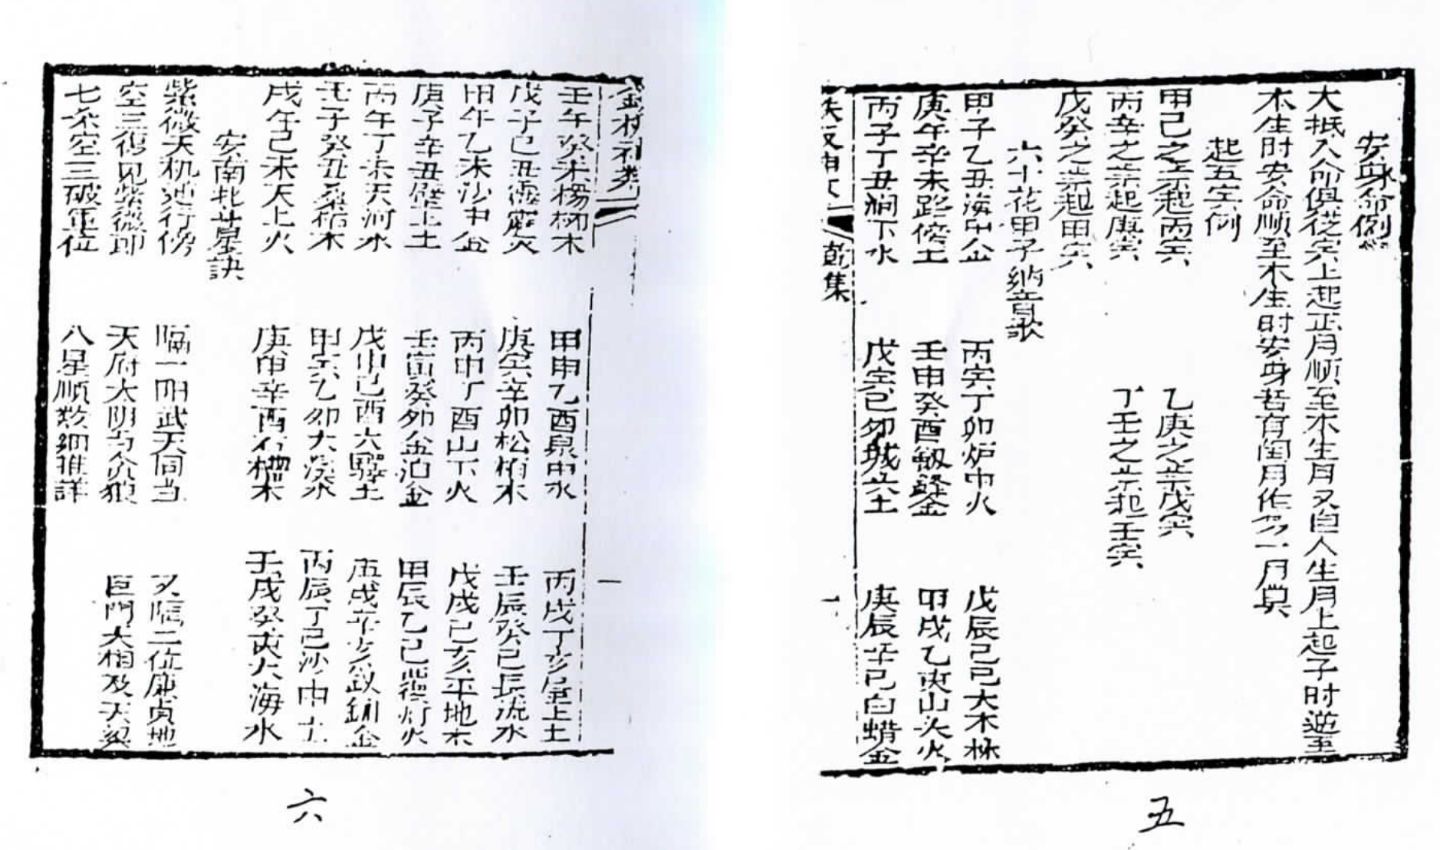 安身命例
大抵人命俱從寅上起正月順至本生月又自人生月上起子时逆至
本生时安命順至本生时安身若有闰月作下一月算
起五寅例
甲己之年起丙寅 乙庚之年戊寅
丙辛之年起庚寅 丁壬之年起壬寅
戊癸之年起甲寅
六十花甲子納音歌
甲子乙丑海中金 丙寅丁卯炉中火 戊辰己巳大木林
庚午辛未路傍土 壬申癸酉劔鋒金 甲戌乙亥山头火
丙子丁丑涧下水 戊寅己卯城头土 庚辰辛巳白蜡金
乾集
一
壬午癸未楊柳木 甲申乙酉泉中水 丙戌丁亥屋上土
戊子己丑霹靂火 庚寅辛卯松栢木 壬辰癸巳長流水
甲午乙未沙中金 丙申丁酉山下火 戊戌己亥平地木
庚子辛丑壁上土 壬寅癸卯金泊金 甲辰乙巳覆灯火
丙午丁未天河水 戊申己酉大驛土 庚戌辛亥釵釧金
壬子癸丑桑柘木 甲寅乙卯大溪水 丙辰丁巳沙中土
戊午己未天上火 庚申辛酉石榴木 壬戌癸亥大海水
安南北斗星訣
紫微天机逆行傍 隔一阳武天同当 又隔二位廉貞地
空三復见紫微郎 天府太阴与貪狼 巨門天相及天梁
七杀空三破軍位 八星順数細推詳
六
五